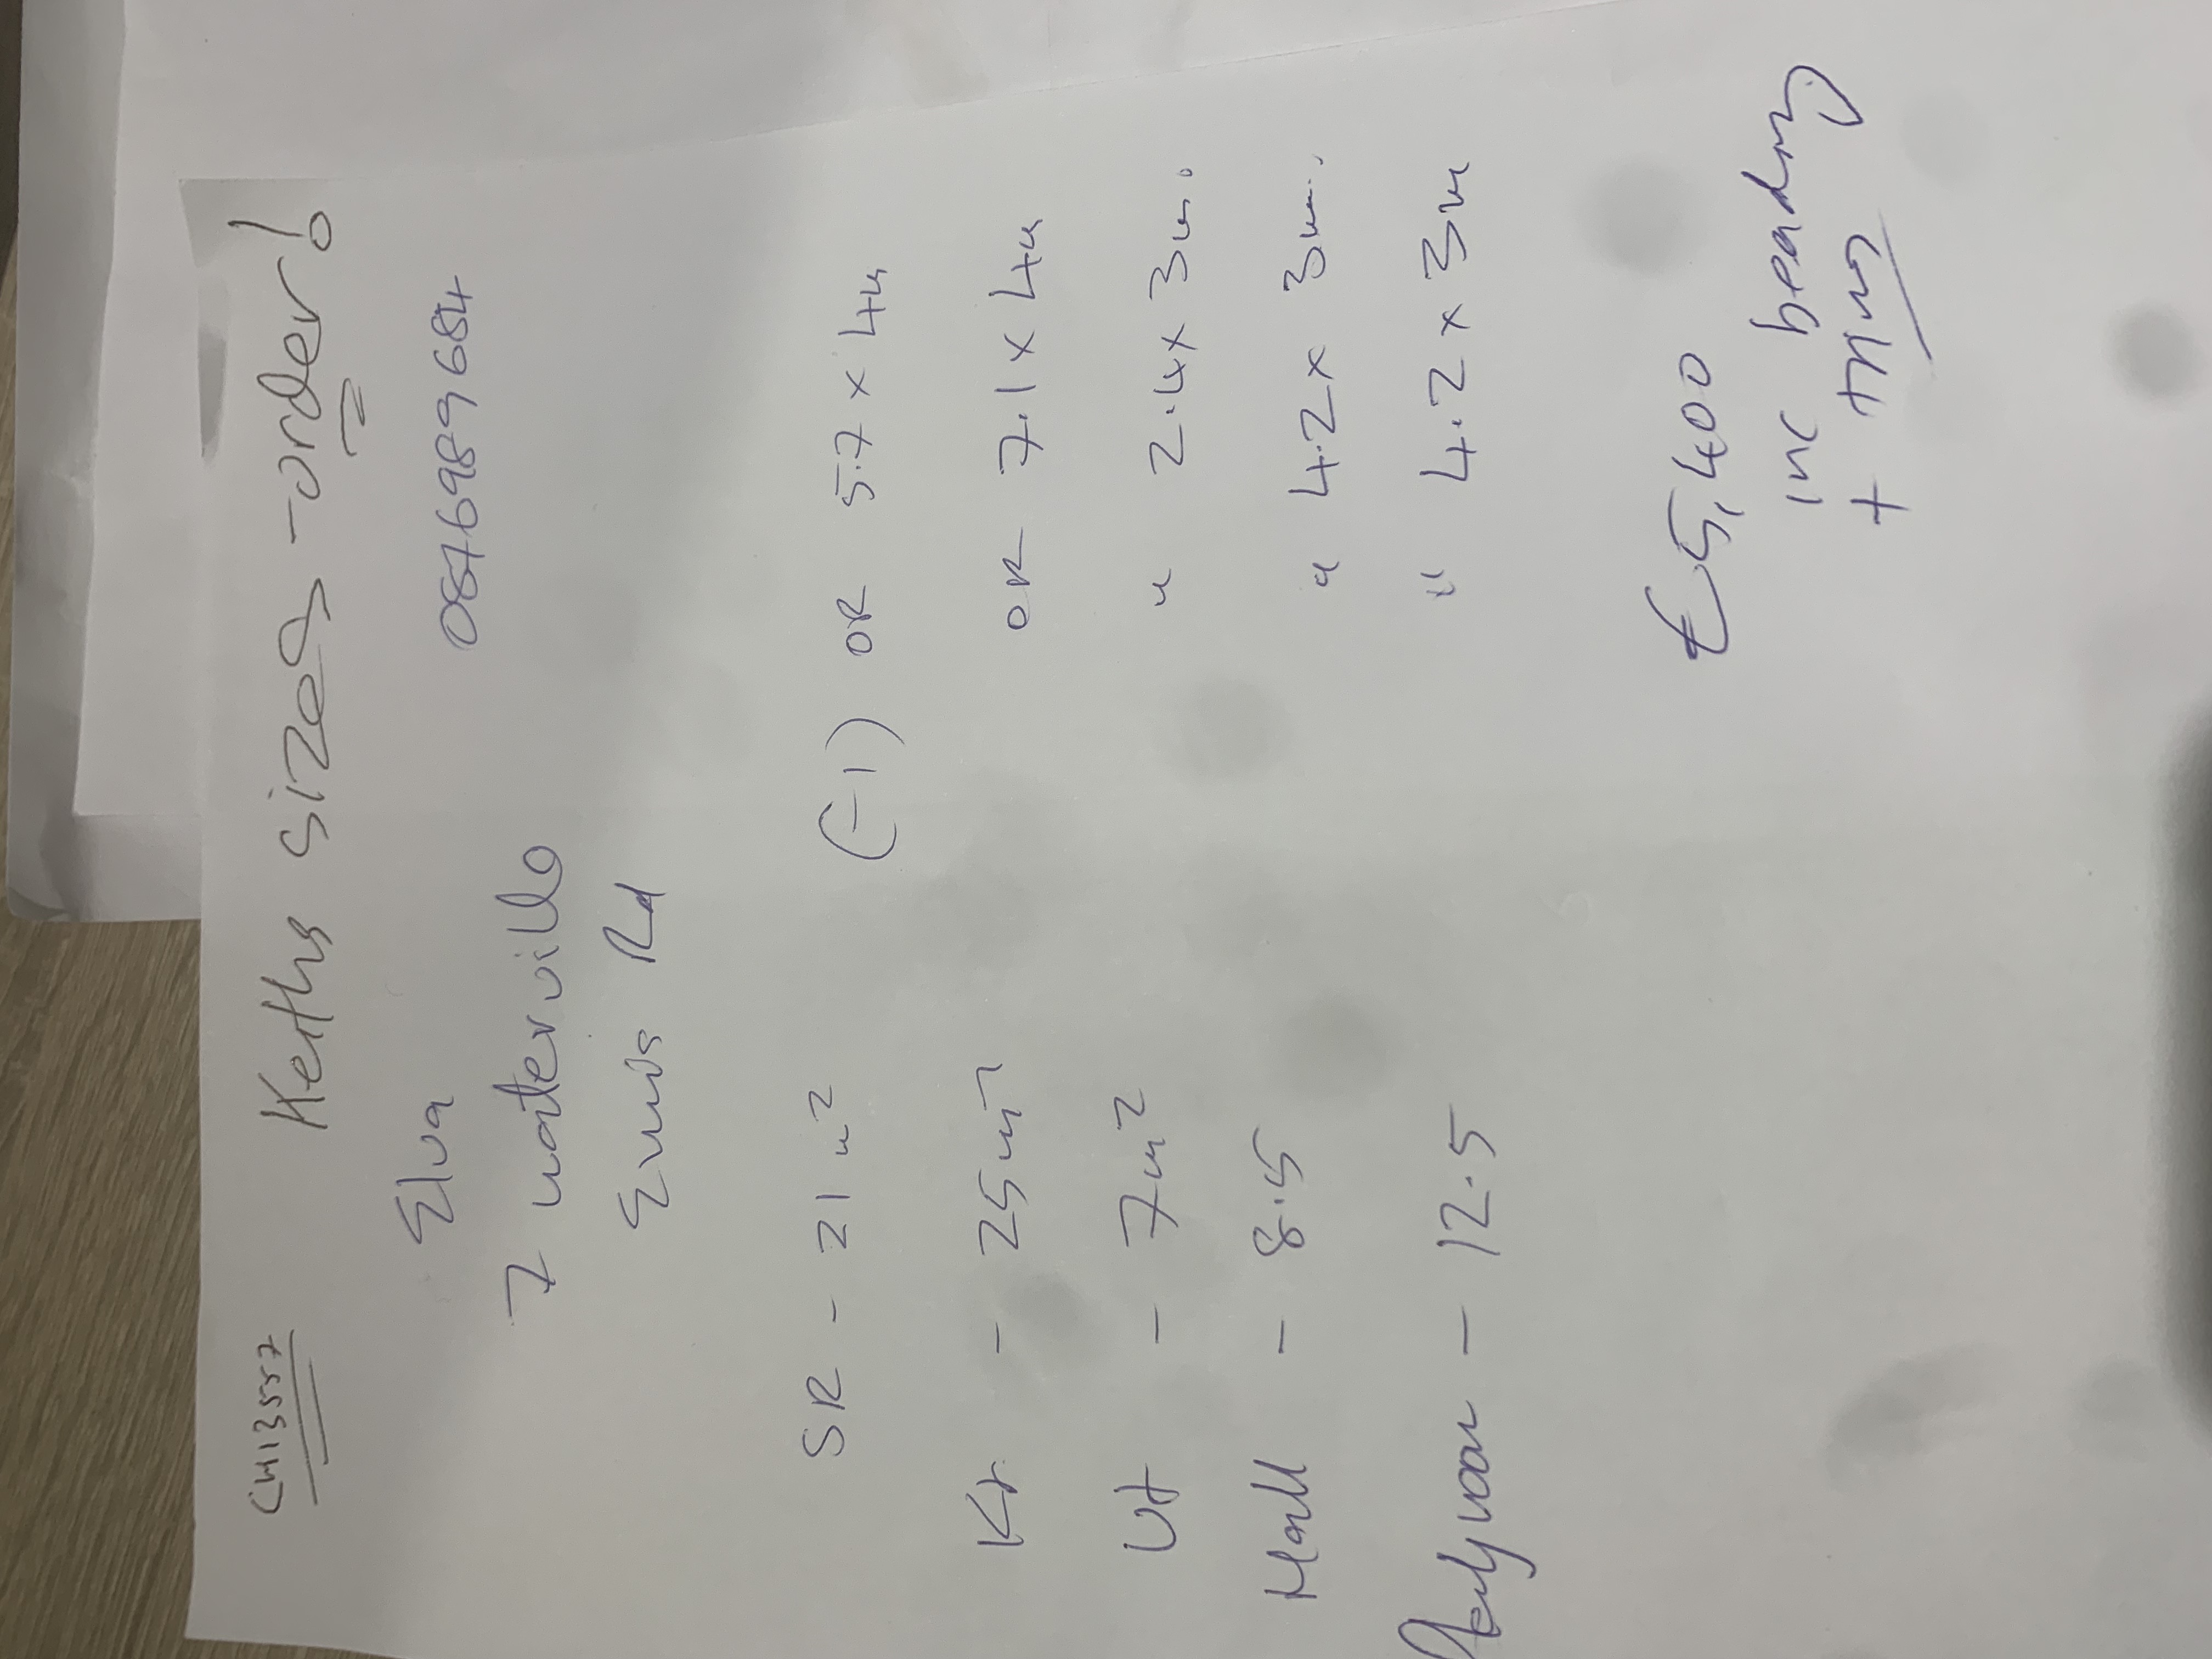 CM13557
Keiths sizes - order!
Elva
0876989684
7 Waterville
Ennis Rd
SR - 21m² (-1) OR 5.7 x 4m
Kt - 25m² OR 7.1 x 4m
Ut - 7m² " 2.4 x 3m.
Hall - 8.5 " 4.2 x 3m.
Playroom - 12.5 " 4.2 x 3m
€5,400
inc beading
+